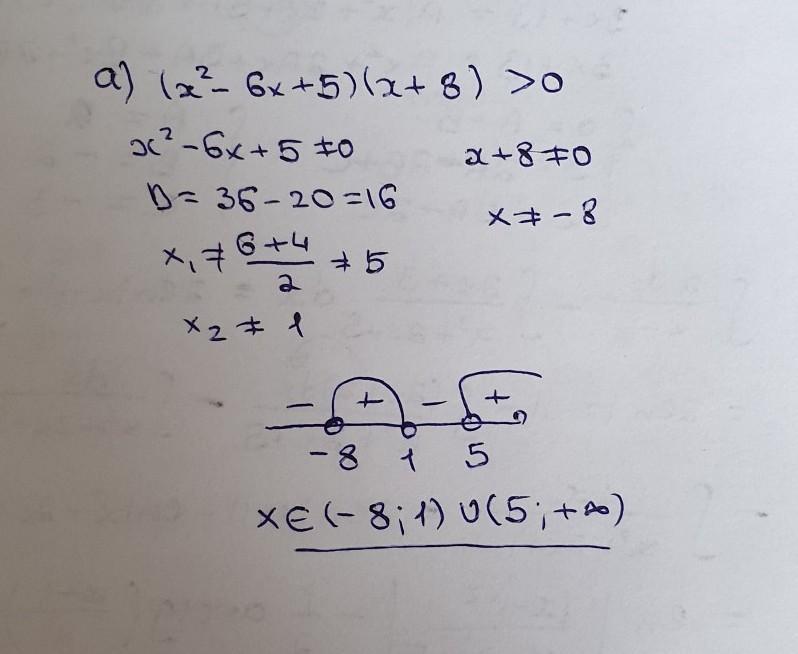 a) (x² - 6x + 5)(x + 8) > 0
x² - 6x + 5 ≠ 0 x + 8 ≠ 0
D = 36 - 20 = 16 x ≠ -8
x₁ ≠ (6 + 4)/2 ≠ 5
x₂ ≠ 1
- + - +
-8 1 5
x ∈ (-8; 1) ∪ (5; +∞)